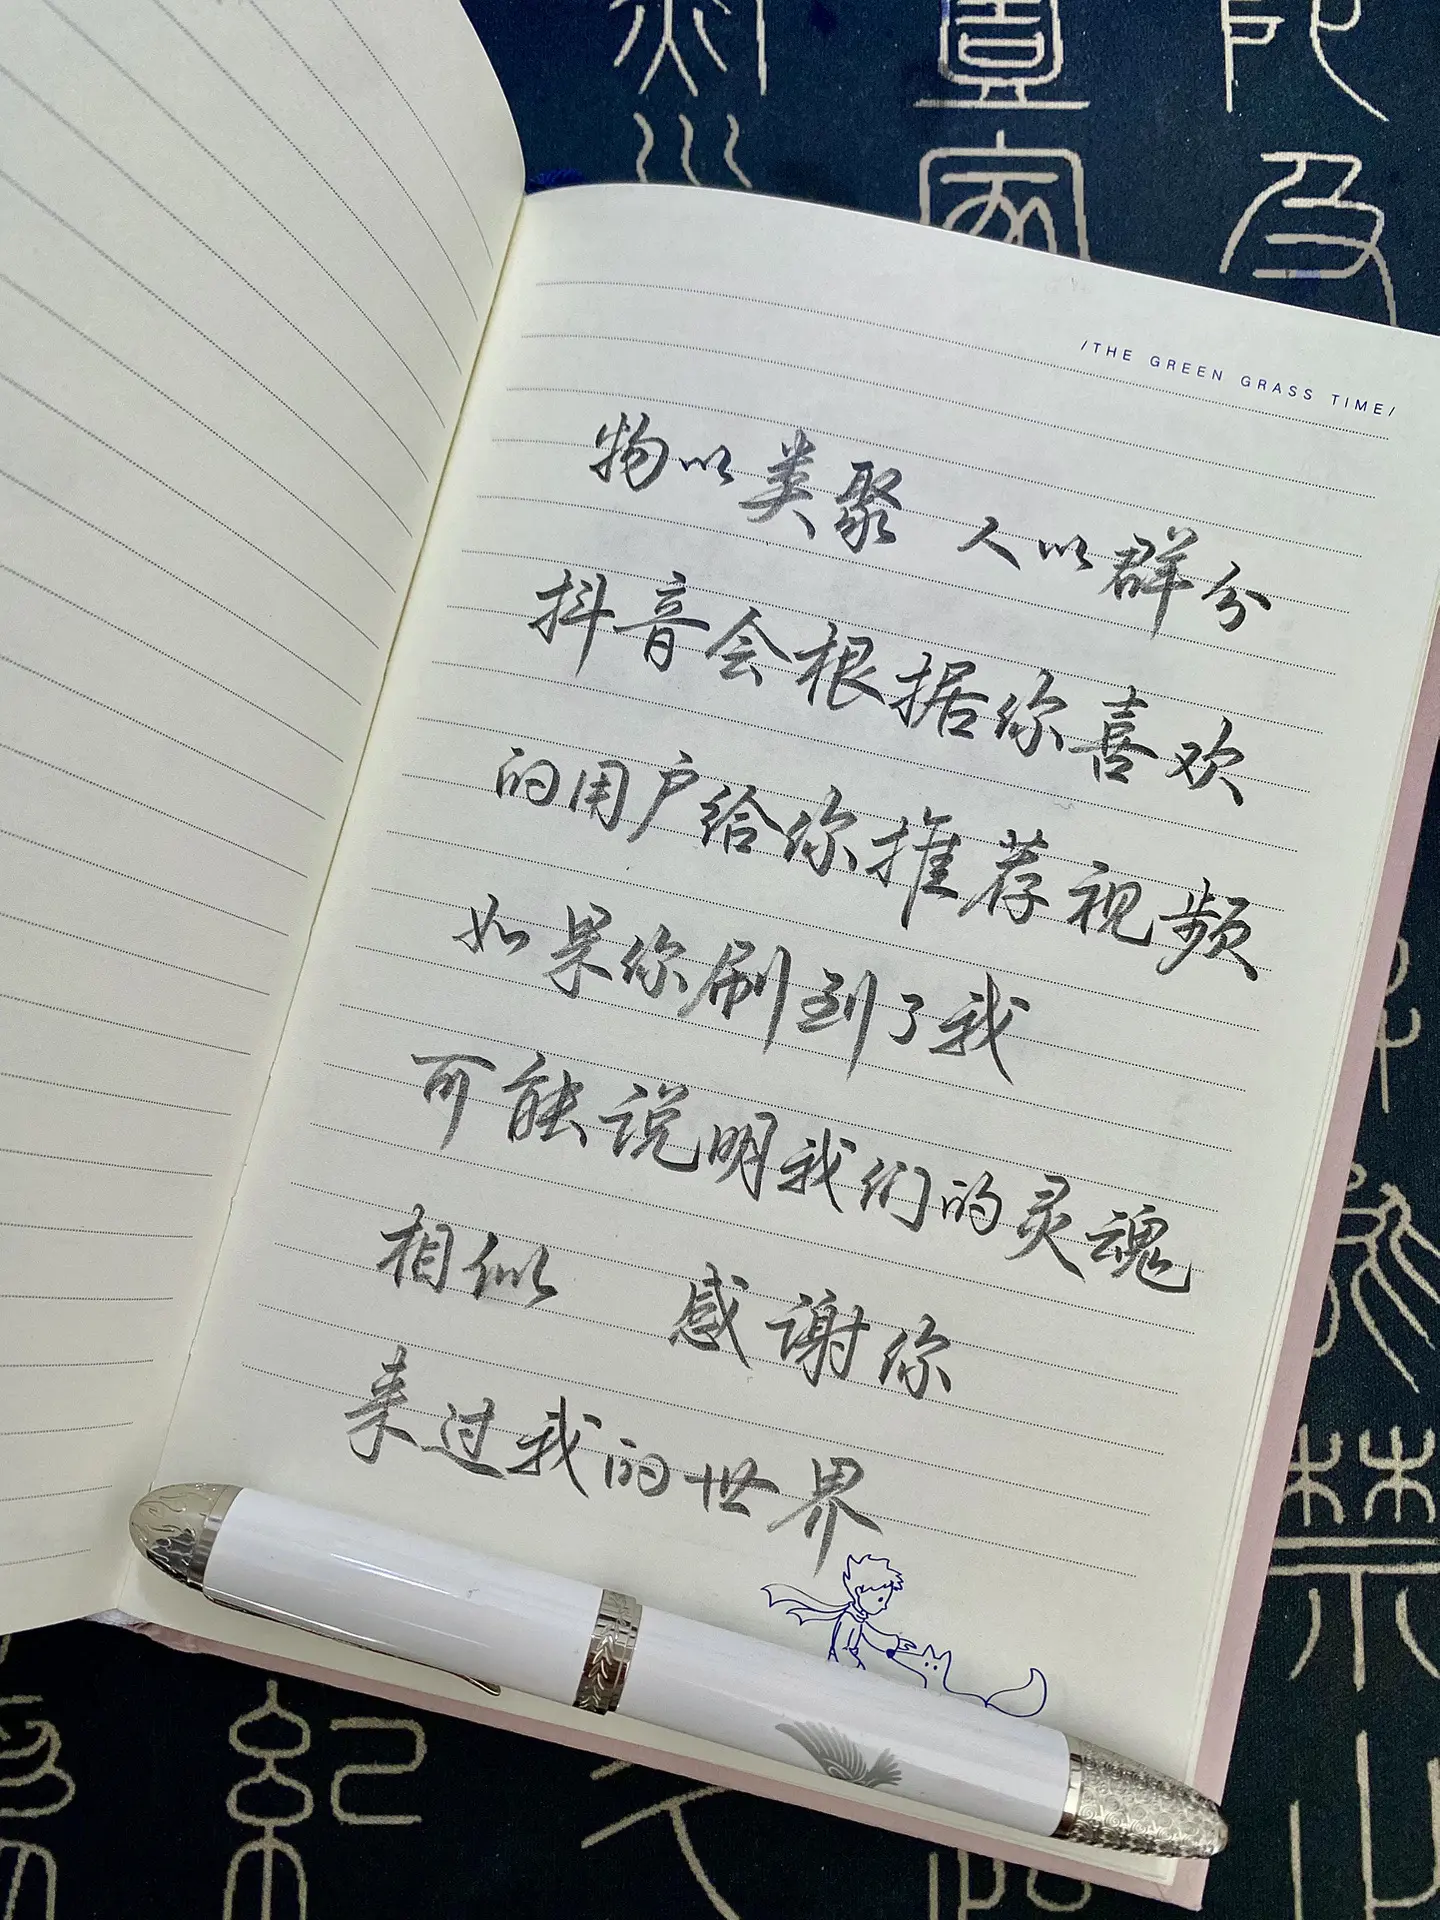 /THE GREEN GRASS TIME/
物以类聚 人以群分
抖音会根据你喜欢
的用户给你推荐视频
如果你刷到了我
可能说明我们的灵魂
相似 感谢你
来过我的世界